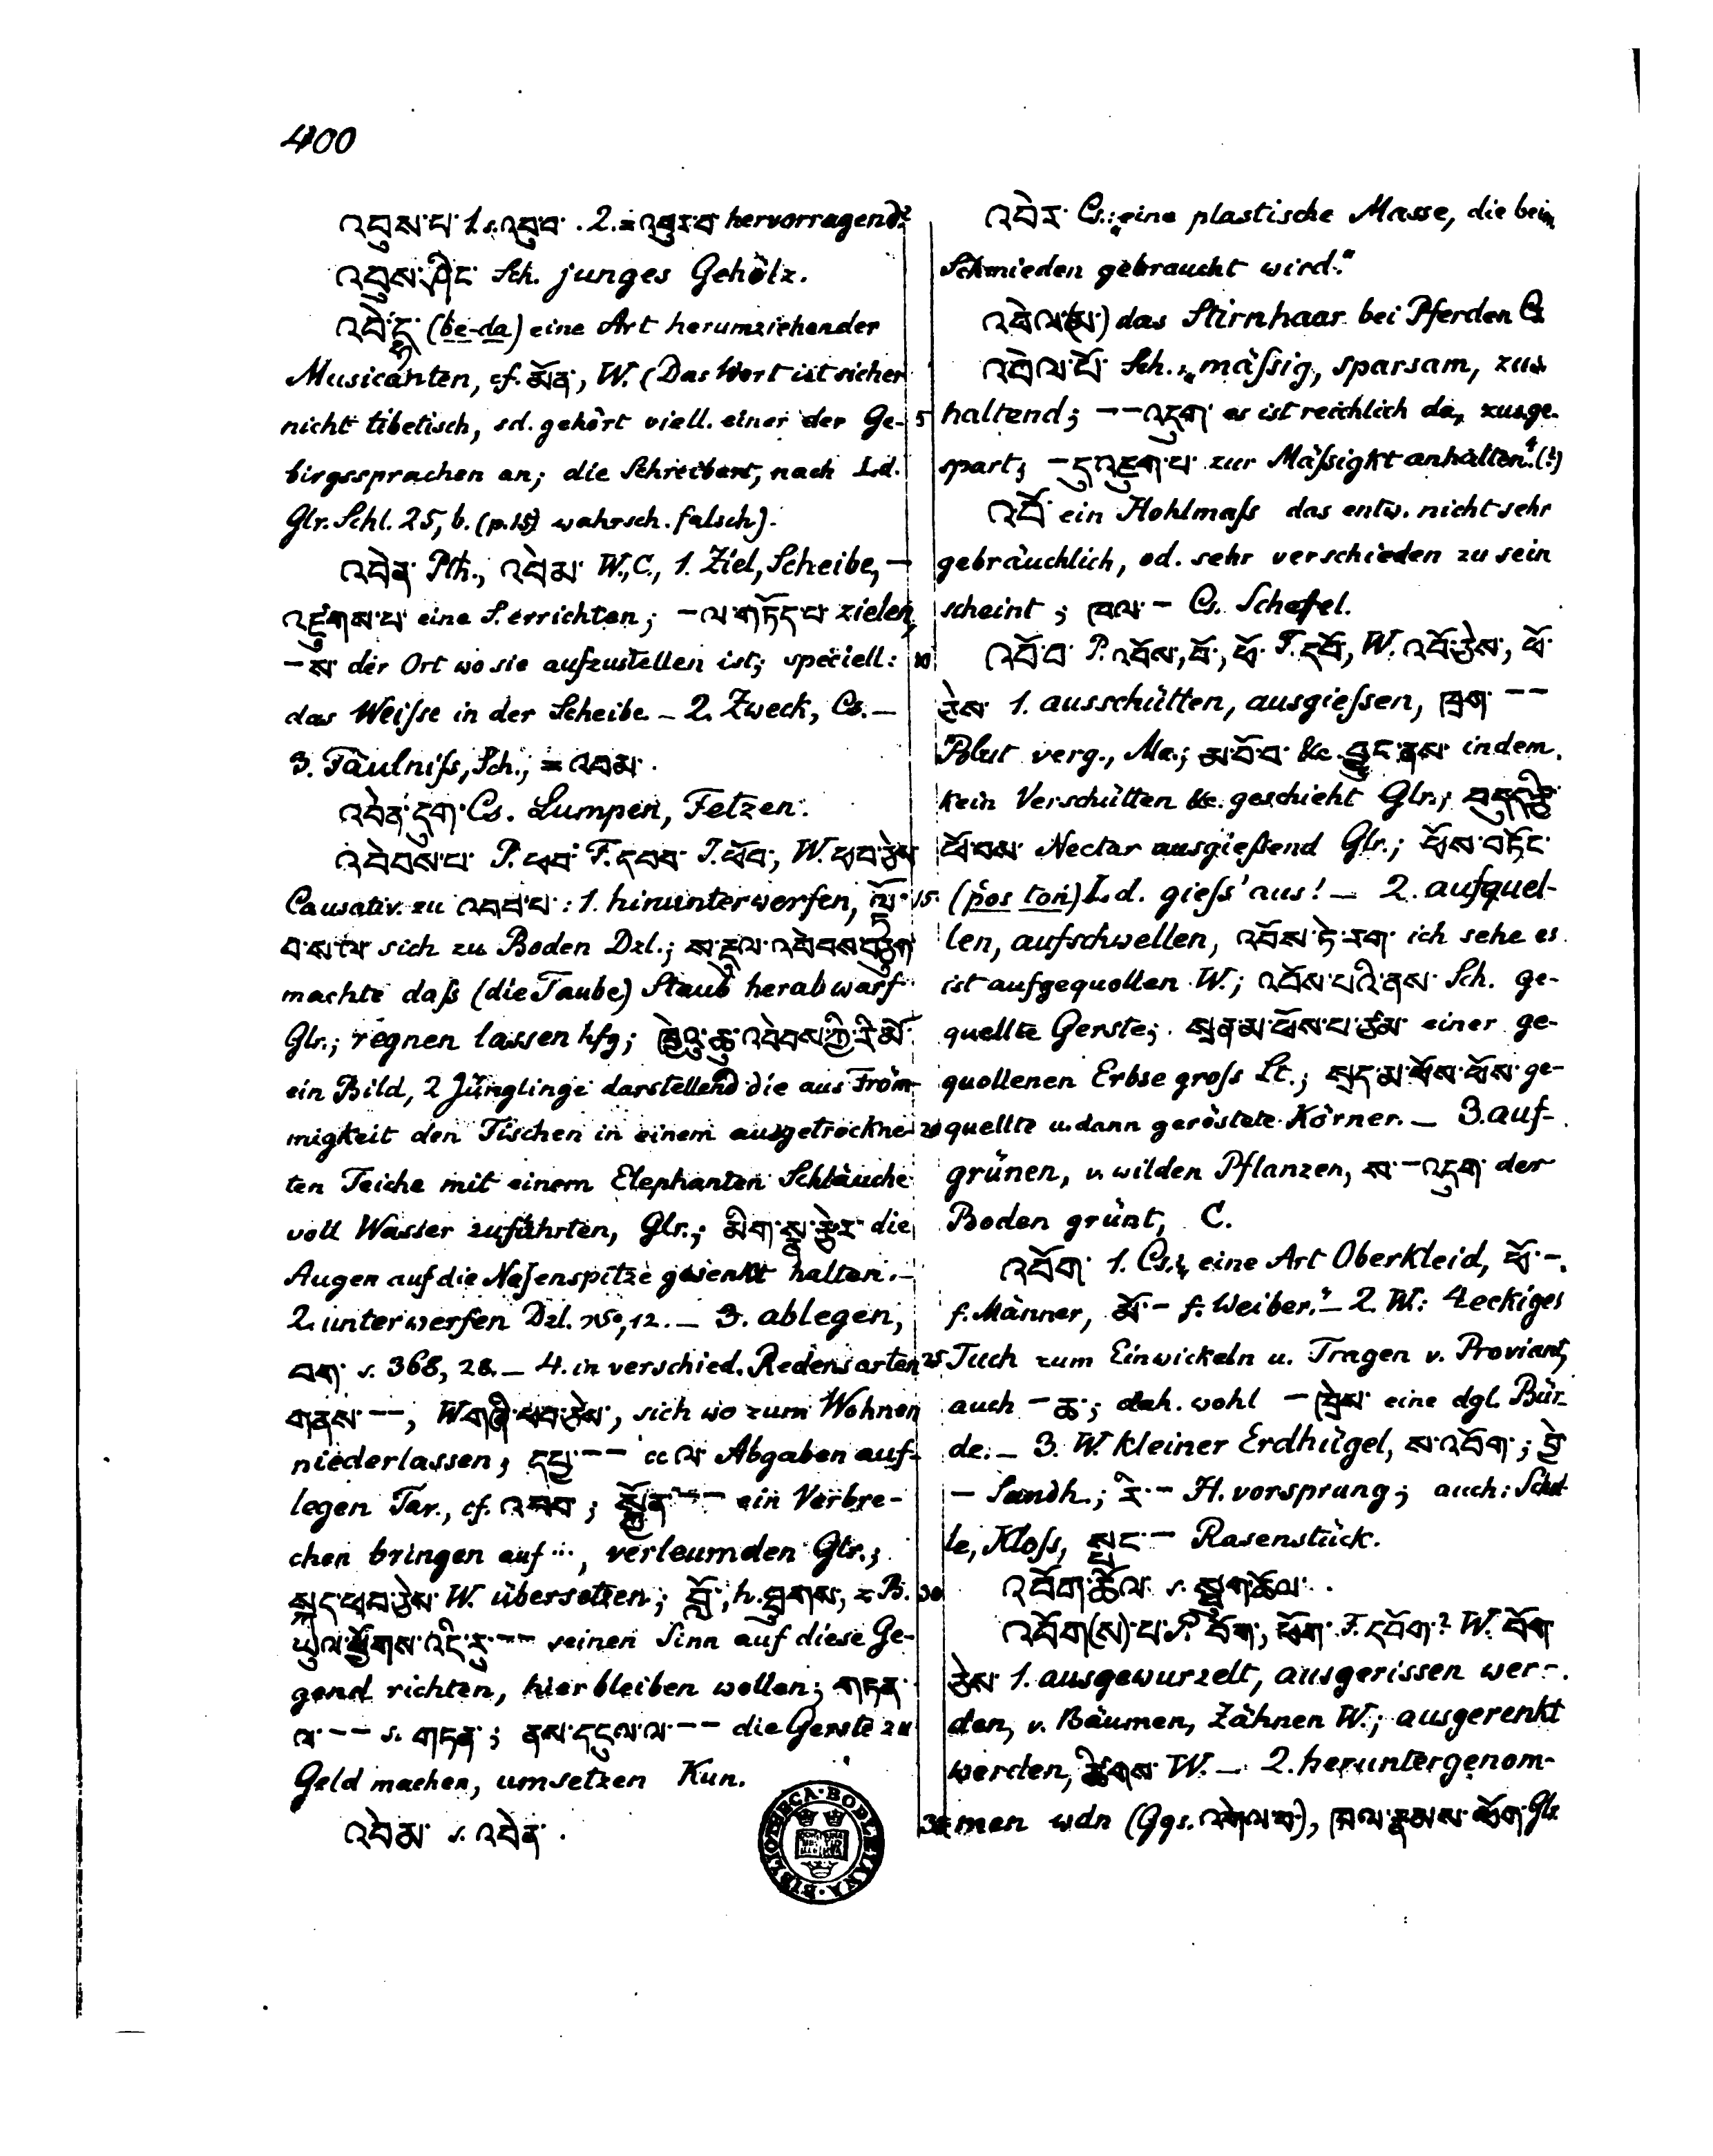 400
འབུས་པ་ 1. s. འབུབ་. 2. = འབུར་བ་ hervorragend?
འབུས་ཤིང་ Sch. junges Gehölz.
འབེ་ད (be-da) eine Art herumziehender
Musicanten, cf. མོན་, W. (Das Wort ist sicher
nicht tibetisch, sd. gehört viell. einer der Ge-
birgssprachen an; die Schreibart, nach Ld.
Glr. Schl. 25, b. (p. 15) wahrsch. falsch).
འབེན་ Pth., འབེམ་ W., C., 1. Ziel, Scheibe, —
འཛུགས་པ་ eine S. errichten; — ལ་གཏོད་པ་ zielen,
— ས་ der Ort wo sie aufzustellen ist; speciell:
das Weiſse in der Scheibe. — 2. Zweck, Cs. —
3. Fäulniſs, Sch., = འབམ་.
འབེན་དུག་ Cs. Lumpen, Fetzen.
འབེབས་པ་ P. ཕབ་ F. དབབ་ I. ཕོབ་, W. ཕབ་ཅེས་
Causativ. zu འབབ་པ་: 1. hinunterwerfen,
sich zu Boden Dzl.; ས་རྡུལ་འབེབས་
machte daß (die Taube) Staub herabwarf
Glr.; regnen lassen hfg; ཁྱེའུ་ཆུ་འབེབས་ཀྱི་རི་མོ་
ein Bild, 2 Jünglinge darstellend die aus Fröm-
migkeit den Fischen in einem ausgetrockne-
ten Teiche mit einem Elephanten Schläuche
voll Wasser zuführten, Glr.; མིག་སྣ་རྩེར་ die
Augen auf die Naſenspitze gesenkt halten. —
2. unterwerfen Dzl. 12. — 3. ablegen,
བག་ s. 368, 28. — 4. in verschied. Redensarten
གནས་ — —, W. གཞི་ཕབ་ཅེས་, sich wo zum Wohnen
niederlassen; དཔྱ་ — — cc ལ་ Abgaben auf-
legen Tar., cf. འབབ་; སྐྱོན་ — — ein Verbre-
chen bringen auf …, verleumden Glr.;
སྐད་ཕབ་ཅེས་ W. übersetzen; བློ་, h. ཐུགས་, z. B.
ཡུལ་ཕྱོགས་འདི་རུ་ — — seinen Sinn auf diese Ge-
gend richten, hier bleiben wollen; གཏན་
ལ་ — — s. གཏན་; ནས་དངུལ་ལ་ — — die Gerste zu
Geld machen, umsetzen Kun.
འབེམ་ s. འབེན་.
འབེར་ Cs.: „eine plastische Masse, die beim
Schmieden gebraucht wird."
འབེལ་(མ་) das Stirnhaar bei Pferden Cs
འབེལ་པོ་ Sch.: „mäſsig, sparsam, zu
haltend; — — འདུག་ es ist reichlich da, zusge-
spart; — དུ་འཇུག་པ་ zur Mäſsigkt anhalten". (?)
འབོ་ ein Hohlmaſs das entw. nicht sehr
gebräuchlich, od. sehr verschieden zu sein
scheint; ཁལ་ — Cs. Scheffel.
འབོ་བ་ P. འབོས་, བོ་, ཕོ་ F. དབོ་, W. འབོ་ཅེས་, ཕོ་
ཅེས་ 1. ausschütten, ausgieſsen, ཁྲག་ — —
Blut verg., Ma.; མ་བོ་བ་ &c. བྱུང་ནས་ indem
kein Verschütten &c. geschieht Glr.; བདུད་རྩི་
ཕོ་བས་ Nectar ausgießend Glr.; ཕོས་བཏོང་
(p̀os toṅ) Ld. gieſs' aus! — 2. aufquel-
len, aufschwellen, འབོས་ཏེ་རག་ ich sehe es
ist aufgequollen W.; འབོས་པའི་ནས་ Sch. ge-
quellte Gerste; སྲན་མ་ཕོས་པ་ཙམ་ einer ge-
quollenen Erbse groſs Lt.; སྲན་མ་ཕོས་ཕོས་ ge-
quellte u. dann geröstete Körner. — 3. auf-
grünen, v. wilden Pflanzen, ས་ — འདུག་ der
Boden grünt, C.
འབོག་ 1. Cs.: „eine Art Oberkleid, ཕོ་ —
f. Männer, མོ་ — f. Weiber." — 2. W.: 4eckiges
Tuch zum Einwickeln u. Tragen v. Proviant,
auch — ཆ་; dah. wohl — ཁྲེས་ eine dgl. Bür-
de. — 3. W. kleiner Erdhügel, ས་འབོག་; བྱེ་
— Sandh.; རི་ — H. vorsprung; auch: Schol-
le, Kloſs, སྤང་ — Rasenstück.
འབོག་ཆོལ་ s. སྦྲག་ཆོལ་.
འབོག(ས)་པ་ P. བོག་, ཕོག་ F. དབོག་? W. བོག་
ཅེས་ 1. ausgewurzelt, ausgerissen wer-
den, v. Bäumen, Zähnen W.; ausgerenkt
werden, ཚིགས་ W. — 2. heruntergenom-
men wdn (Ggs. འགེལ་བ་), ཁལ་རྣམས་ཕོག་ Glr
5
10
15
20
25
30
35
BIBLIOTHECA BODLEIANA